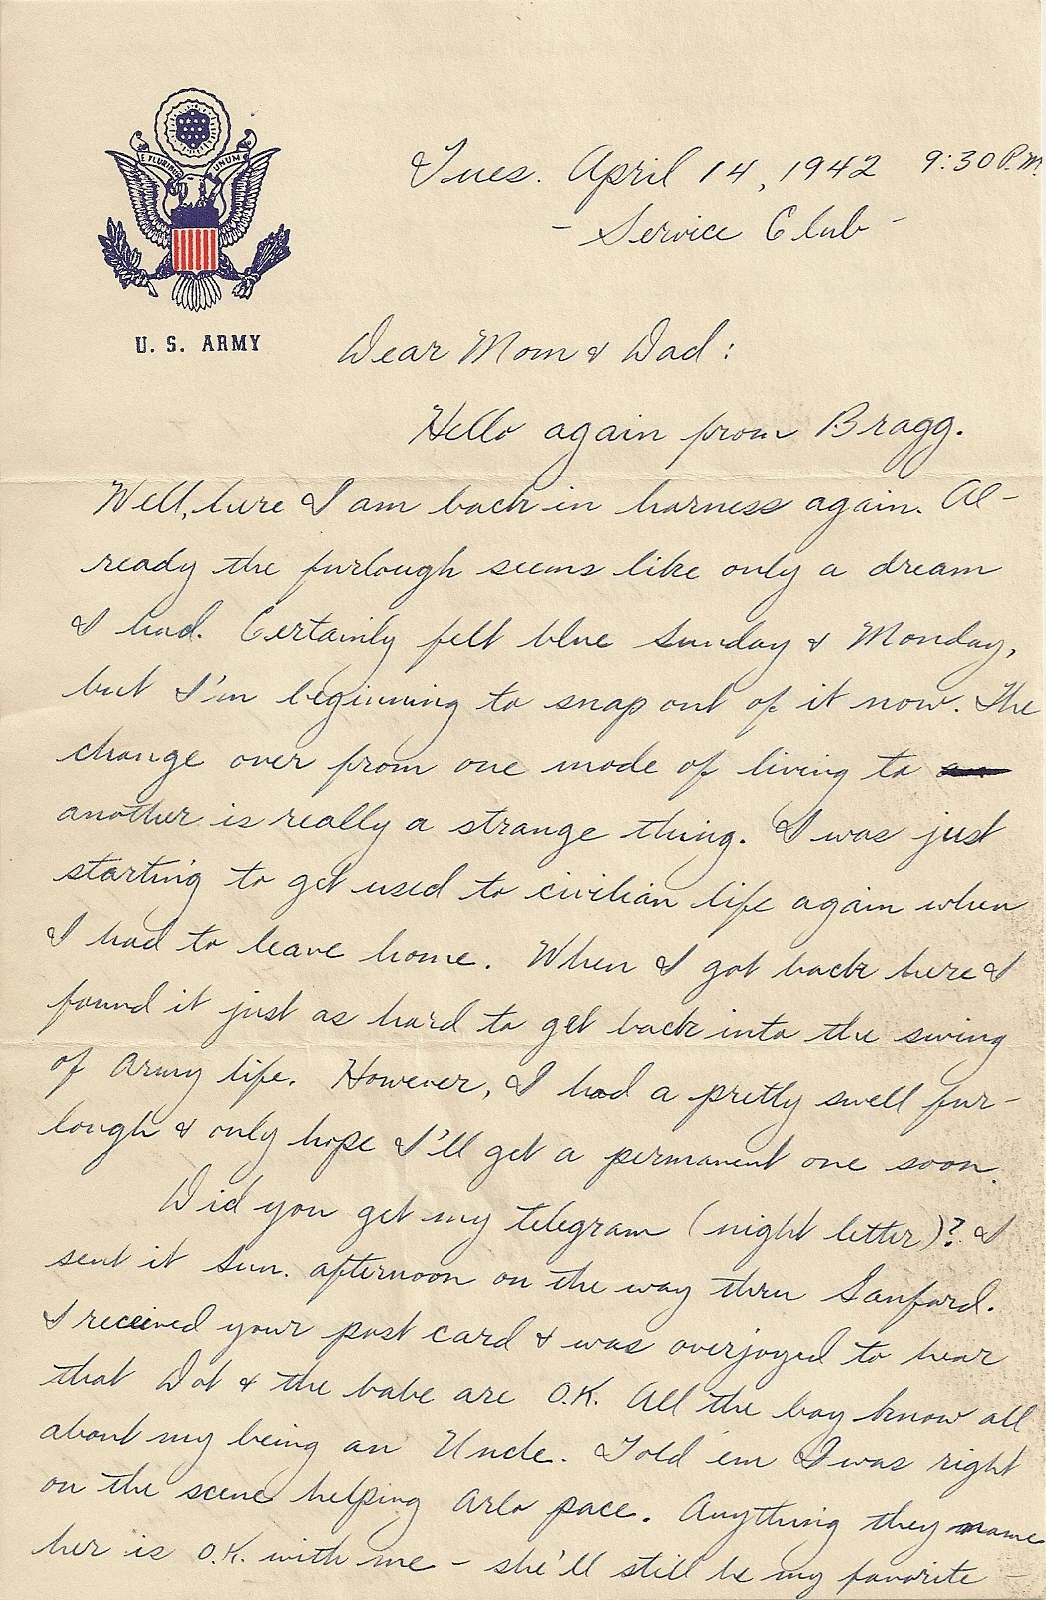 E PLURIBUS UNUM
U. S. ARMY
Tues. April 14, 1942 9:30 P.M.
- Service Club -
Dear Mom & Dad:
Hello again from Bragg.
Well, here I am back in harness again. Al-
ready the furlough seems like only a dream
I had. Certainly felt blue Sunday & Monday,
but I'm beginning to snap out of it now. The
change over from one mode of living to
another is really a strange thing. I was just
starting to get used to civilian life again when
I had to leave home. When I got back here I
found it just as hard to get back into the swing
of Army life. However, I had a pretty swell fur-
lough & only hope I'll get a permanent one soon.
Did you get my telegram (night letter)? I
sent it Sun. afternoon on the way thru Sanford.
I received your post card & was overjoyed to hear
that Dot & the babe are O.K. All the boy know all
about my being an Uncle. Told 'em I was right
on the scene helping Arlo pace. Anything they name
her is O.K. with me - she'll still be my favorite -